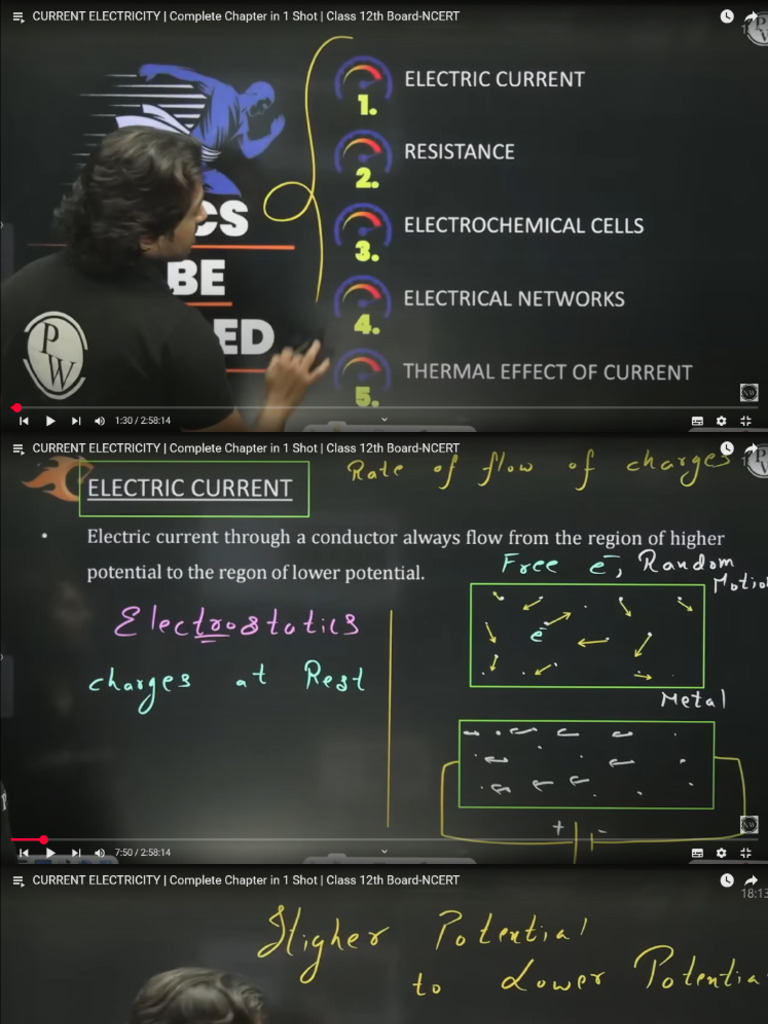 CURRENT ELECTRICITY | Complete Chapter in 1 Shot | Class 12th Board-NCERT
1. ELECTRIC CURRENT
2. RESISTANCE
CS
3. ELECTROCHEMICAL CELLS
BE
4. ELECTRICAL NETWORKS
ED
PW
5. THERMAL EFFECT OF CURRENT
1:30 / 2:58:14
CURRENT ELECTRICITY | Complete Chapter in 1 Shot | Class 12th Board-NCERT
Rate of flow of charges
ELECTRIC CURRENT
• Electric current through a conductor always flow from the region of higher
potential to the regon of lower potential.
Free e⁻, Random
Motio
Electrostatics
e⁻
charges at Rest
Metal
+ -
7:50 / 2:58:14
CURRENT ELECTRICITY | Complete Chapter in 1 Shot | Class 12th Board-NCERT
18:13
Higher Potential
to Lower Potentia